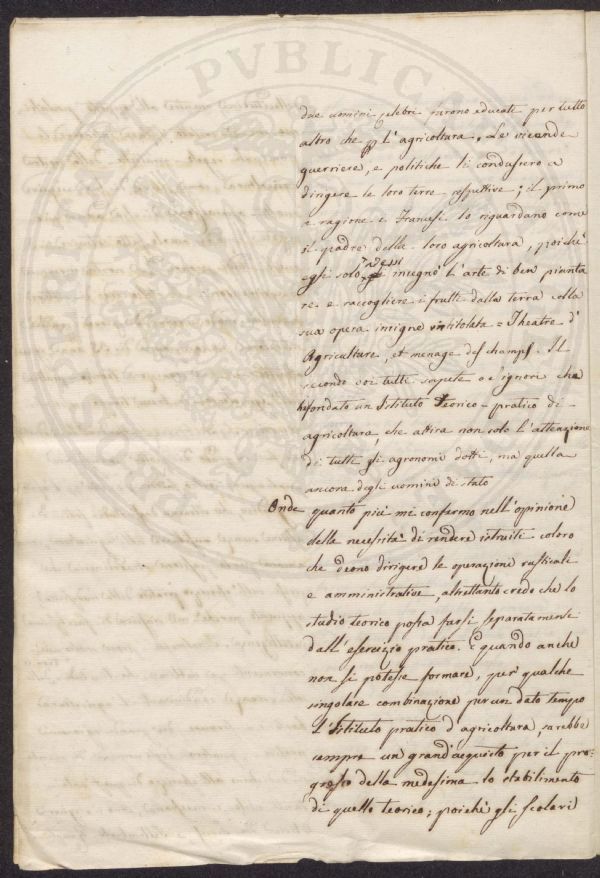 due uomini celebri furono educati per tutto
altro che per l'agricoltura. Le vicende
guerriere, e politiche li condussero a
dirigere le loro terre rispettive; il primo
a ragione i Francesi lo riguardano come
il padre della loro agricoltura, poichè
egli solo insegnò l'arte di ben pianta
re e raccogliere i frutti dalla terra colla
sua opera insigne intitolata = Theatre d'
Agriculture, et menage des champs. Il
secondo voi tutti sapete o Signori che
ha fondato un Istituto Teorico-pratico di
agricoltura, che attira non solo l'attenzione
di tutti gli agronomi dotti, ma quella
ancora degli uomini di stato
Onde quanto più mi confermo nell'opinione
della necessità di rendere istruiti coloro
che deono dirigere le operazioni rusticali
e amministrative, altrettanto credo che lo
studio teorico possa farsi separatamente
dall'esercizio pratico. E quando anche
non si potesse formare, per qualche
singolare combinazione per un dato tempo
l'Istituto pratico d'agricoltura, sarebbe
sempre un grand'acquisto per il pro-
gresso della medesima lo stabilimento
di quello teorico; poichè gli scolari
PVBLICA